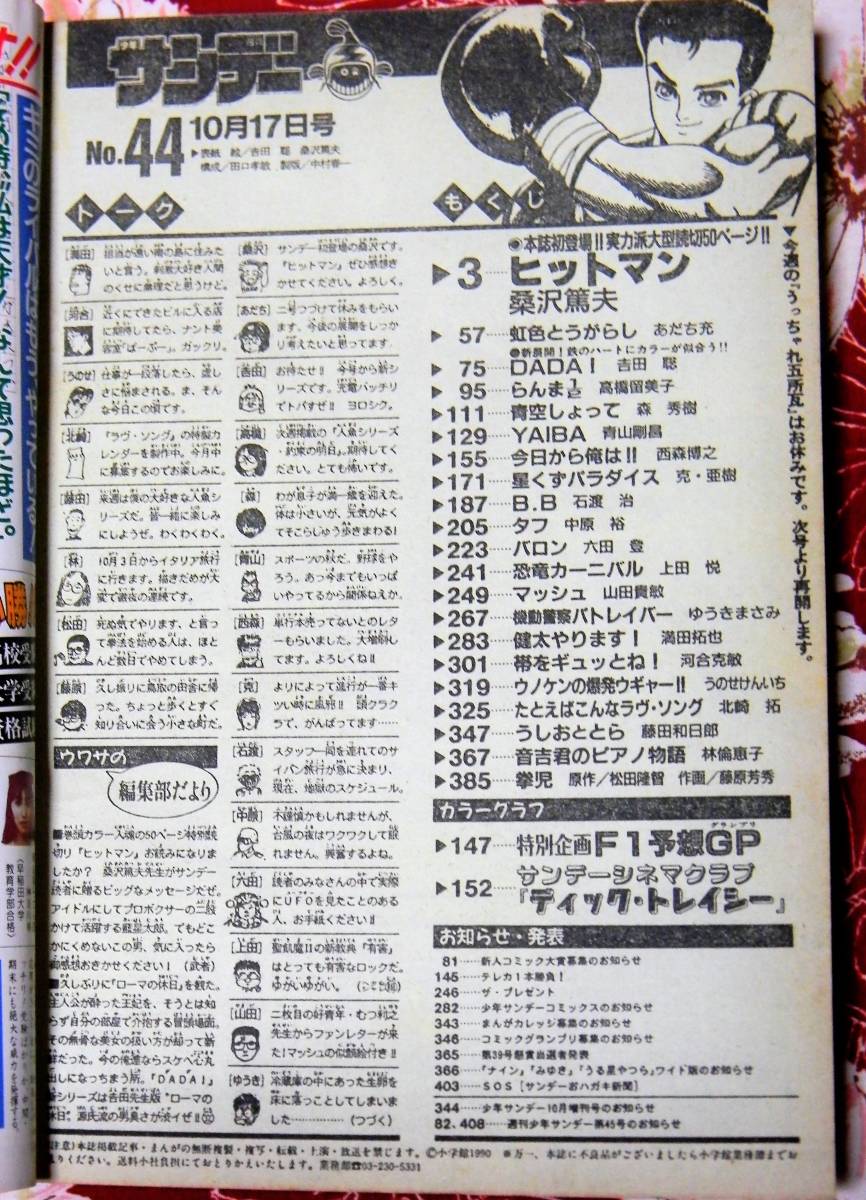 サンデー
No.44 10月17日号
▶表紙 絵／吉田 聡 桑沢篤夫
構成／田口孝敏 製版／中村春一
トーク
[満田] 担当が遠い南の島に住みた
いと言う。刺激大好き人間
のくせに無理だと思うけど。
[河合] 近くにできたビルに入る店
に期待してたら、ナント美
容室「ばーぶー」。ガックリ。
[うのせ] 仕事が一段落したら、淋し
さに悩まされる。ま、そん
な今日この頃です。
[北崎] 『ラヴ・ソング』の特製カ
レンダーを製作中。今月中
に募集するのでお楽しみに。
[藤田] 来週は僕の大好きな人魚シ
リーズだ。皆一緒に楽しみ
にしようぜ。わくわくわく。
[林] 10月3日からイタリア旅行
に行きます。描きだめが大
変で最後の連続です。
[松田] 死ぬ気でやります、と言っ
て拳法を始める人は、ほと
んど数日でやめてしまう。
[藤原] 久し振りに鳥取の田舎に帰
った。ちょっと歩くとすぐ
知り合いに会う小さな町だ。
[桑沢] サンデー初登場の桑沢です。
『ヒットマン』ぜひ感想き
かせてください。よろしく。
[あだち] 二号つづけて休みをもらい
ます。今後の展開をしっか
り考えたいと思ってます。
[吉田] お待たせ!! 今号から新シ
リーズです。充電バッチリ
でトバすぜ!! ヨロシク。
[高橋] 次週掲載の『人魚シリーズ
・約束の明日』。期待してく
ださい。とても怖いです。
[森] わが息子が満一歳を迎えた。
体は小さいが、元気がよく
てそこらじゅう歩きまわる!
[青山] スポーツの秋だ。野球をや
ろう。あっ今までもいっぱ
いやってるから関係ねえか。
[西森] 単行本売ってないとのレタ
ーもらいました。大増刷し
てます。よろしくね!!
[克] よりによって進行が一番キ
ツい時に風邪!! 頭クラク
ラで、がんばってます……
[石渡] スタッフ一同を連れてのサ
イパン旅行が急に決まり、
現在、地獄のスケジュール。
[中原] 不謹慎かもしれませんが、
台風の夜はワクワクして眠
れません。興奮するよね。
[六田] 読者のみなさんの中で実際
にUFOを見たことのある
人、お手紙ください!!
[上田] 聖飢魔IIの新教典「有害」
はとっても有害なロックだ。
ゆがいゆがい。
[山田] 二枚目の好青年・むつ利之
先生からファンレターが来
た!マッシュの似顔絵付き!!
[ゆうき] 冷蔵庫の中にあった生卵を
床に落っことしてしまいま
した…………(つづく)
ウワサの
編集部だより
■巻頭カラー入魂の50ページ特別読
切り『ヒットマン』お読みになりま
したか? 桑沢篤夫先生がサンデー
読者に贈るビッグなメッセージだぜ。
アイドルにしてプロボクサーの二股
かけて活躍する藍星太郎。でもどこ
かにくめないこの男、気に入ったら
御感想おきかせください! (武者)
■久しぶりに『ローマの休日』を観た。
主人公が酔った王妃を、そうとは知
らず自分の部屋で介抱する冒頭場面。
その無骨な美女の扱い方が却って新
鮮だった。今の俺達ならスケベ心丸
出しになっちまう所。『DADA!』
新シリーズは吉田先生版"ローマの
休日"。源氏流の男臭さが渋イぜ!!
もくじ
●本誌初登場!!実力派大型読切50ページ!!
▶3……ヒットマン
桑沢篤夫
▶57……虹色とうがらし あだち充
●新展開!鉄のハートにカラーが似合う!!
▶75……DADA! 吉田 聡
▶95……らんま1/2 高橋留美子
▶111……青空しょって 森 秀樹
▶129……YAIBA 青山剛昌
▶155……今日から俺は!! 西森博之
▶171……星くずパラダイス 克・亜樹
▶187……B.B 石渡 治
▶205……タフ 中原 裕
▶223……バロン 六田 登
▶241……恐竜カーニバル 上田 悦
▶249……マッシュ 山田貴敏
▶267……機動警察パトレイバー ゆうきまさみ
▶283……健太やります! 満田拓也
▶301……帯をギュッとね! 河合克敏
▶319……ウノケンの爆発ウギャー!! うのせけんいち
▶325……たとえばこんなラヴ・ソング 北崎 拓
▶347……うしおととら 藤田和日郎
▶367……音吉君のピアノ物語 林倫恵子
▶385……拳児 原作／松田隆智 作画／藤原芳秀
▼今週の「うっちゃれ五所瓦」はお休みです。次号より再開します。
カラーグラフ
▶147……特別企画F1予想GP
グランプリ
▶152……サンデーシネマクラブ
『ディック・トレイシー』
お知らせ・発表
81……新人コミック大賞募集のお知らせ
145……テレカ1本勝負!
246……ザ・プレゼント
282……少年サンデーコミックスのお知らせ
343……まんがカレッジ募集のお知らせ
346……コミックグランプリ募集のお知らせ
365……第39号懸賞当選者発表
366……「ナイン」「みゆき」「うる星やつら」ワイド版のお知らせ
403……SOS[サンデーおハガキ新聞]
344……少年サンデー10月増刊号のお知らせ
82,408……週刊少年サンデー第45号のお知らせ
注意)本誌掲載記事・まんがの無断複製・複写・転載・上演・放送を禁じます。©小学館1990 ※万一、本誌に不良品がございましたら小学館業務部までお
りください。送料小社負担にておとりかえいたします。業務部☎03-230-5331
(早稲田大学
教育学部合格)